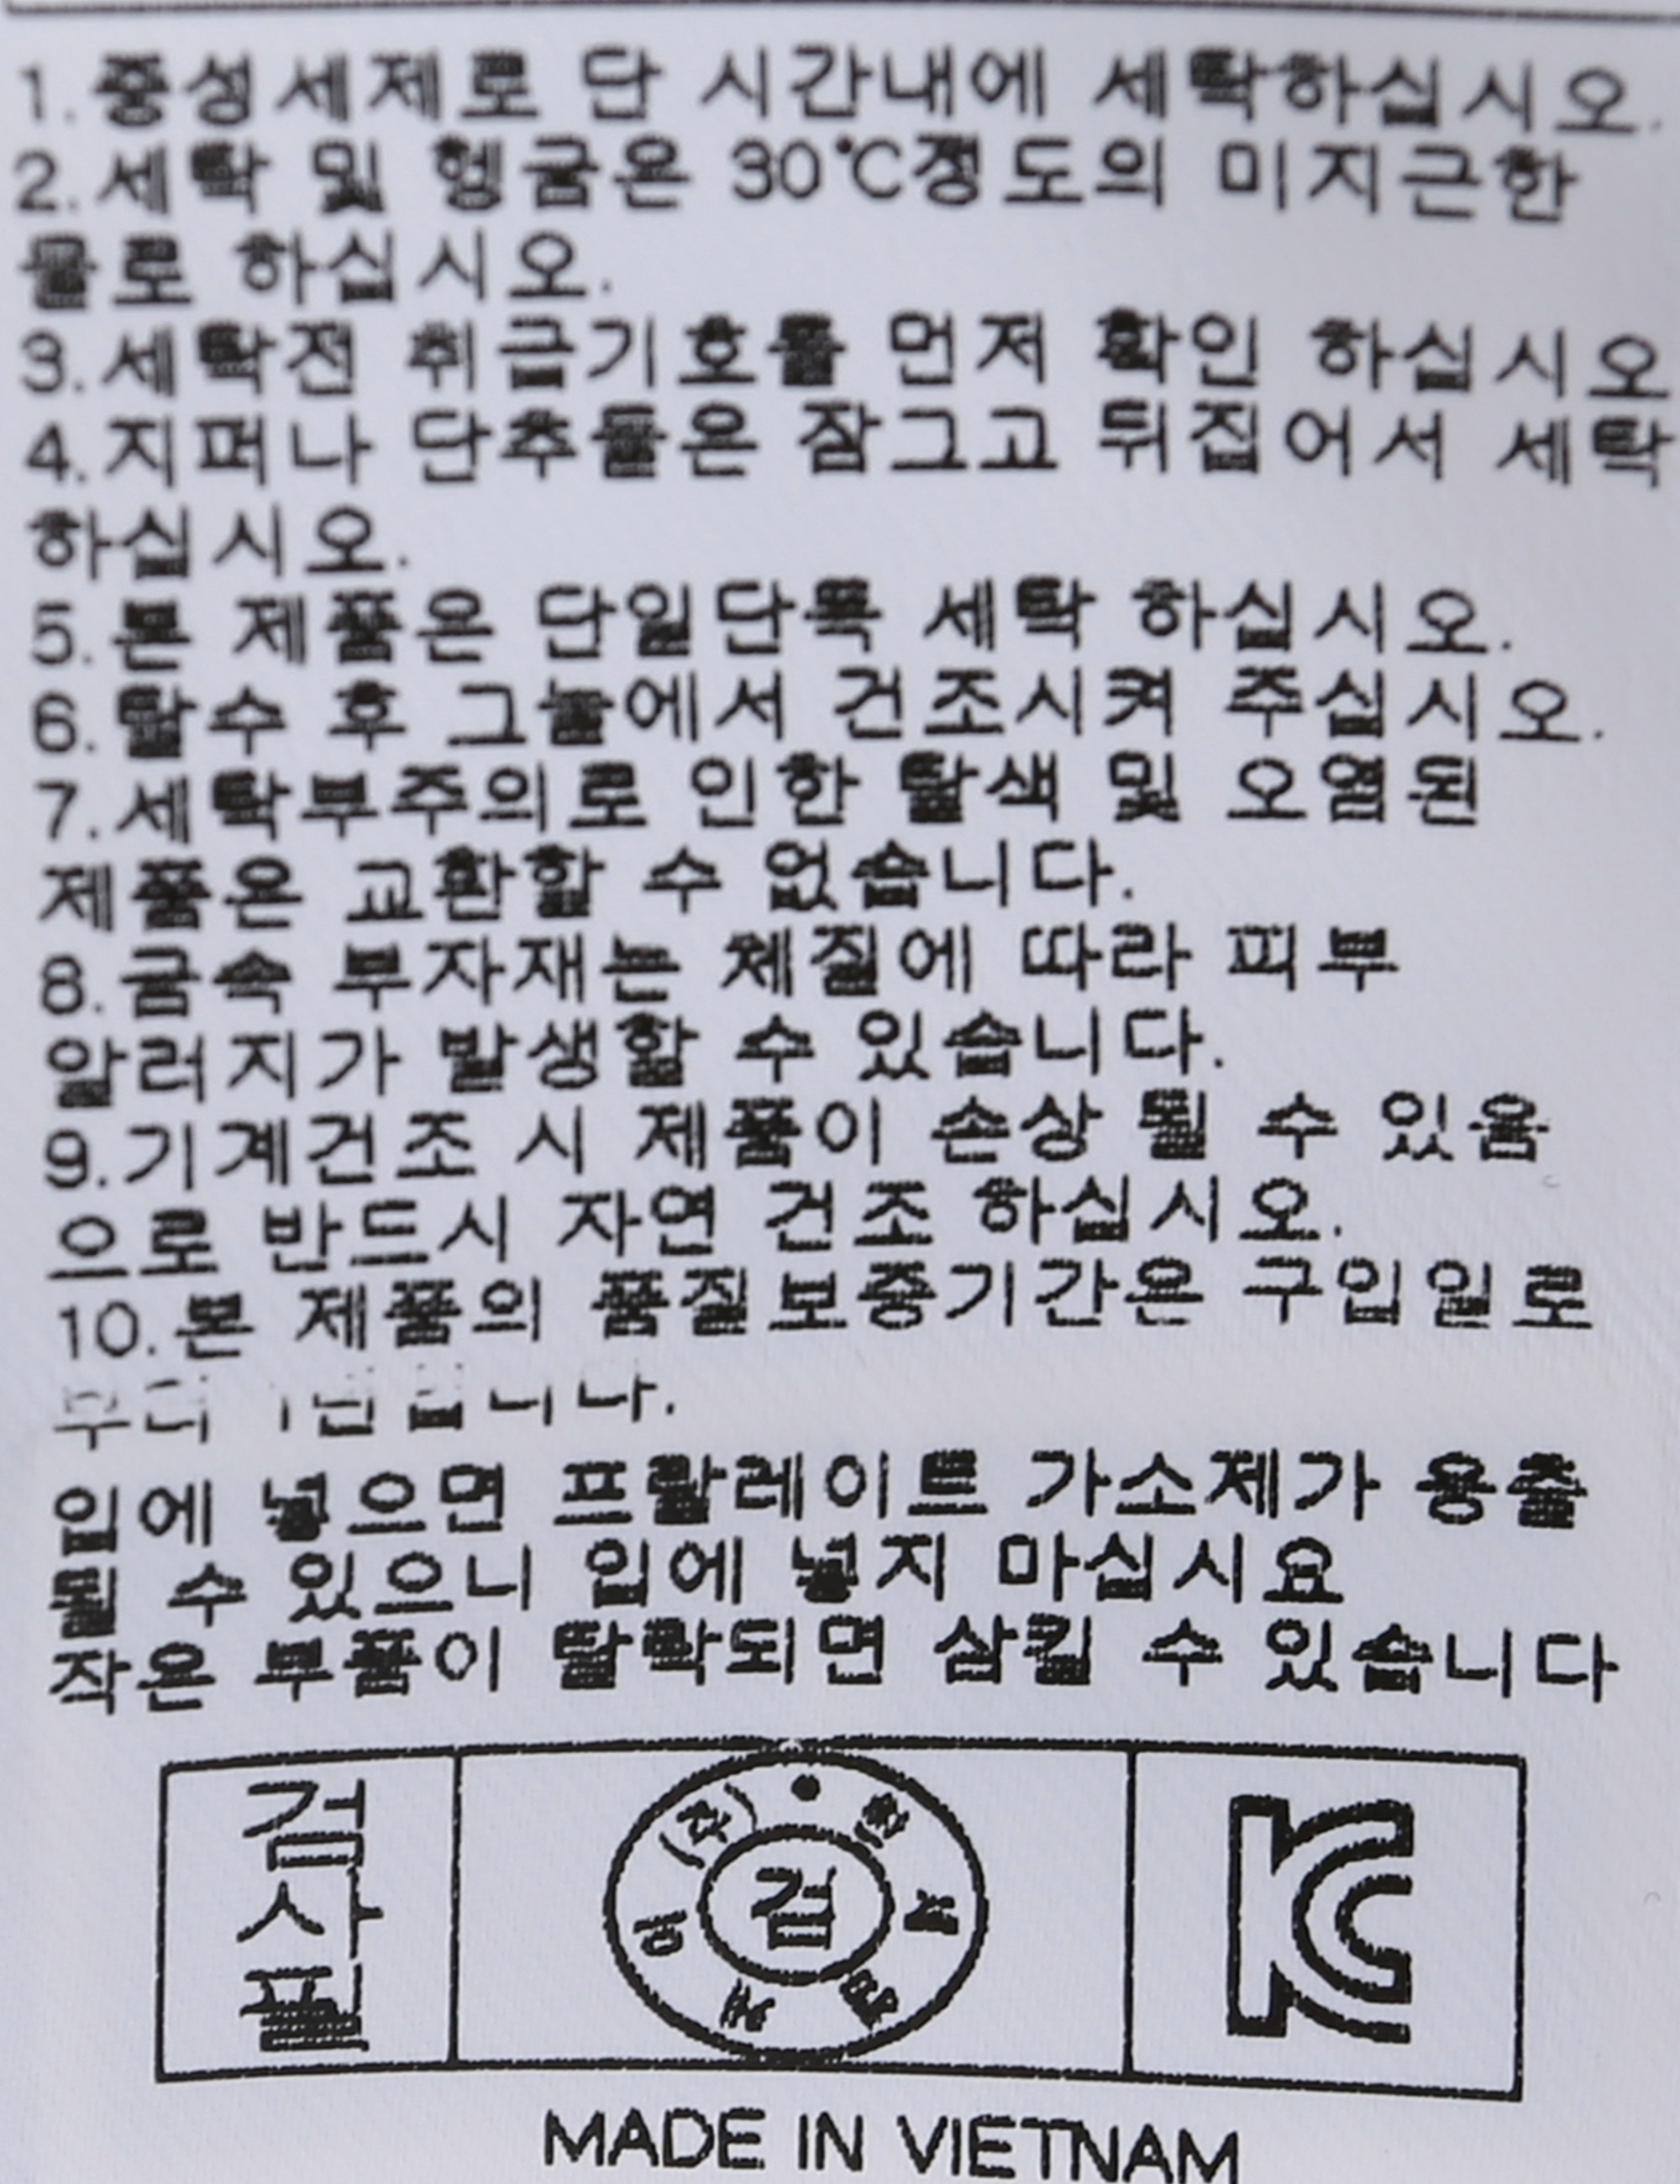 1.중성세제로 단 시간내에 세탁하십시오.
2.세탁 및 헹굼은 30℃정도의 미지근한
물로 하십시오.
3.세탁전 취급기호를 먼저 확인 하십시오
4.지퍼나 단추들은 잠그고 뒤집어서 세탁
하십시오.
5.본 제품은 단일단독 세탁 하십시오.
6.탈수 후 그늘에서 건조시켜 주십시오.
7.세탁부주의로 인한 탈색 및 오염된
제품은 교환할 수 없습니다.
8.금속 부자재는 체질에 따라 피부
알러지가 발생할 수 있습니다.
9.기계건조 시 제품이 손상 될 수 있음
으로 반드시 자연 건조 하십시오.
10.본 제품의 품질보증기간은 구입일로
부터 1년입니다.
입에 넣으면 프탈레이트 가소제가 용출
될 수 있으니 입에 넣지 마십시요
작은 부품이 탈락되면 삼킬 수 있습니다
검사필
검
KC
MADE IN VIETNAM